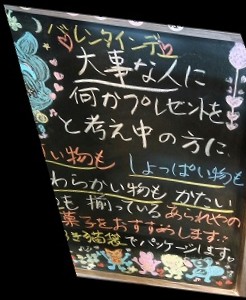 バレンタインデー
大事な人に
何かプレゼントを
と考え中の方に
い物も しょっぱい物も
わらかい物も かたい
も揃っている あられやの
菓子をおすすめします。
でパッケージします。